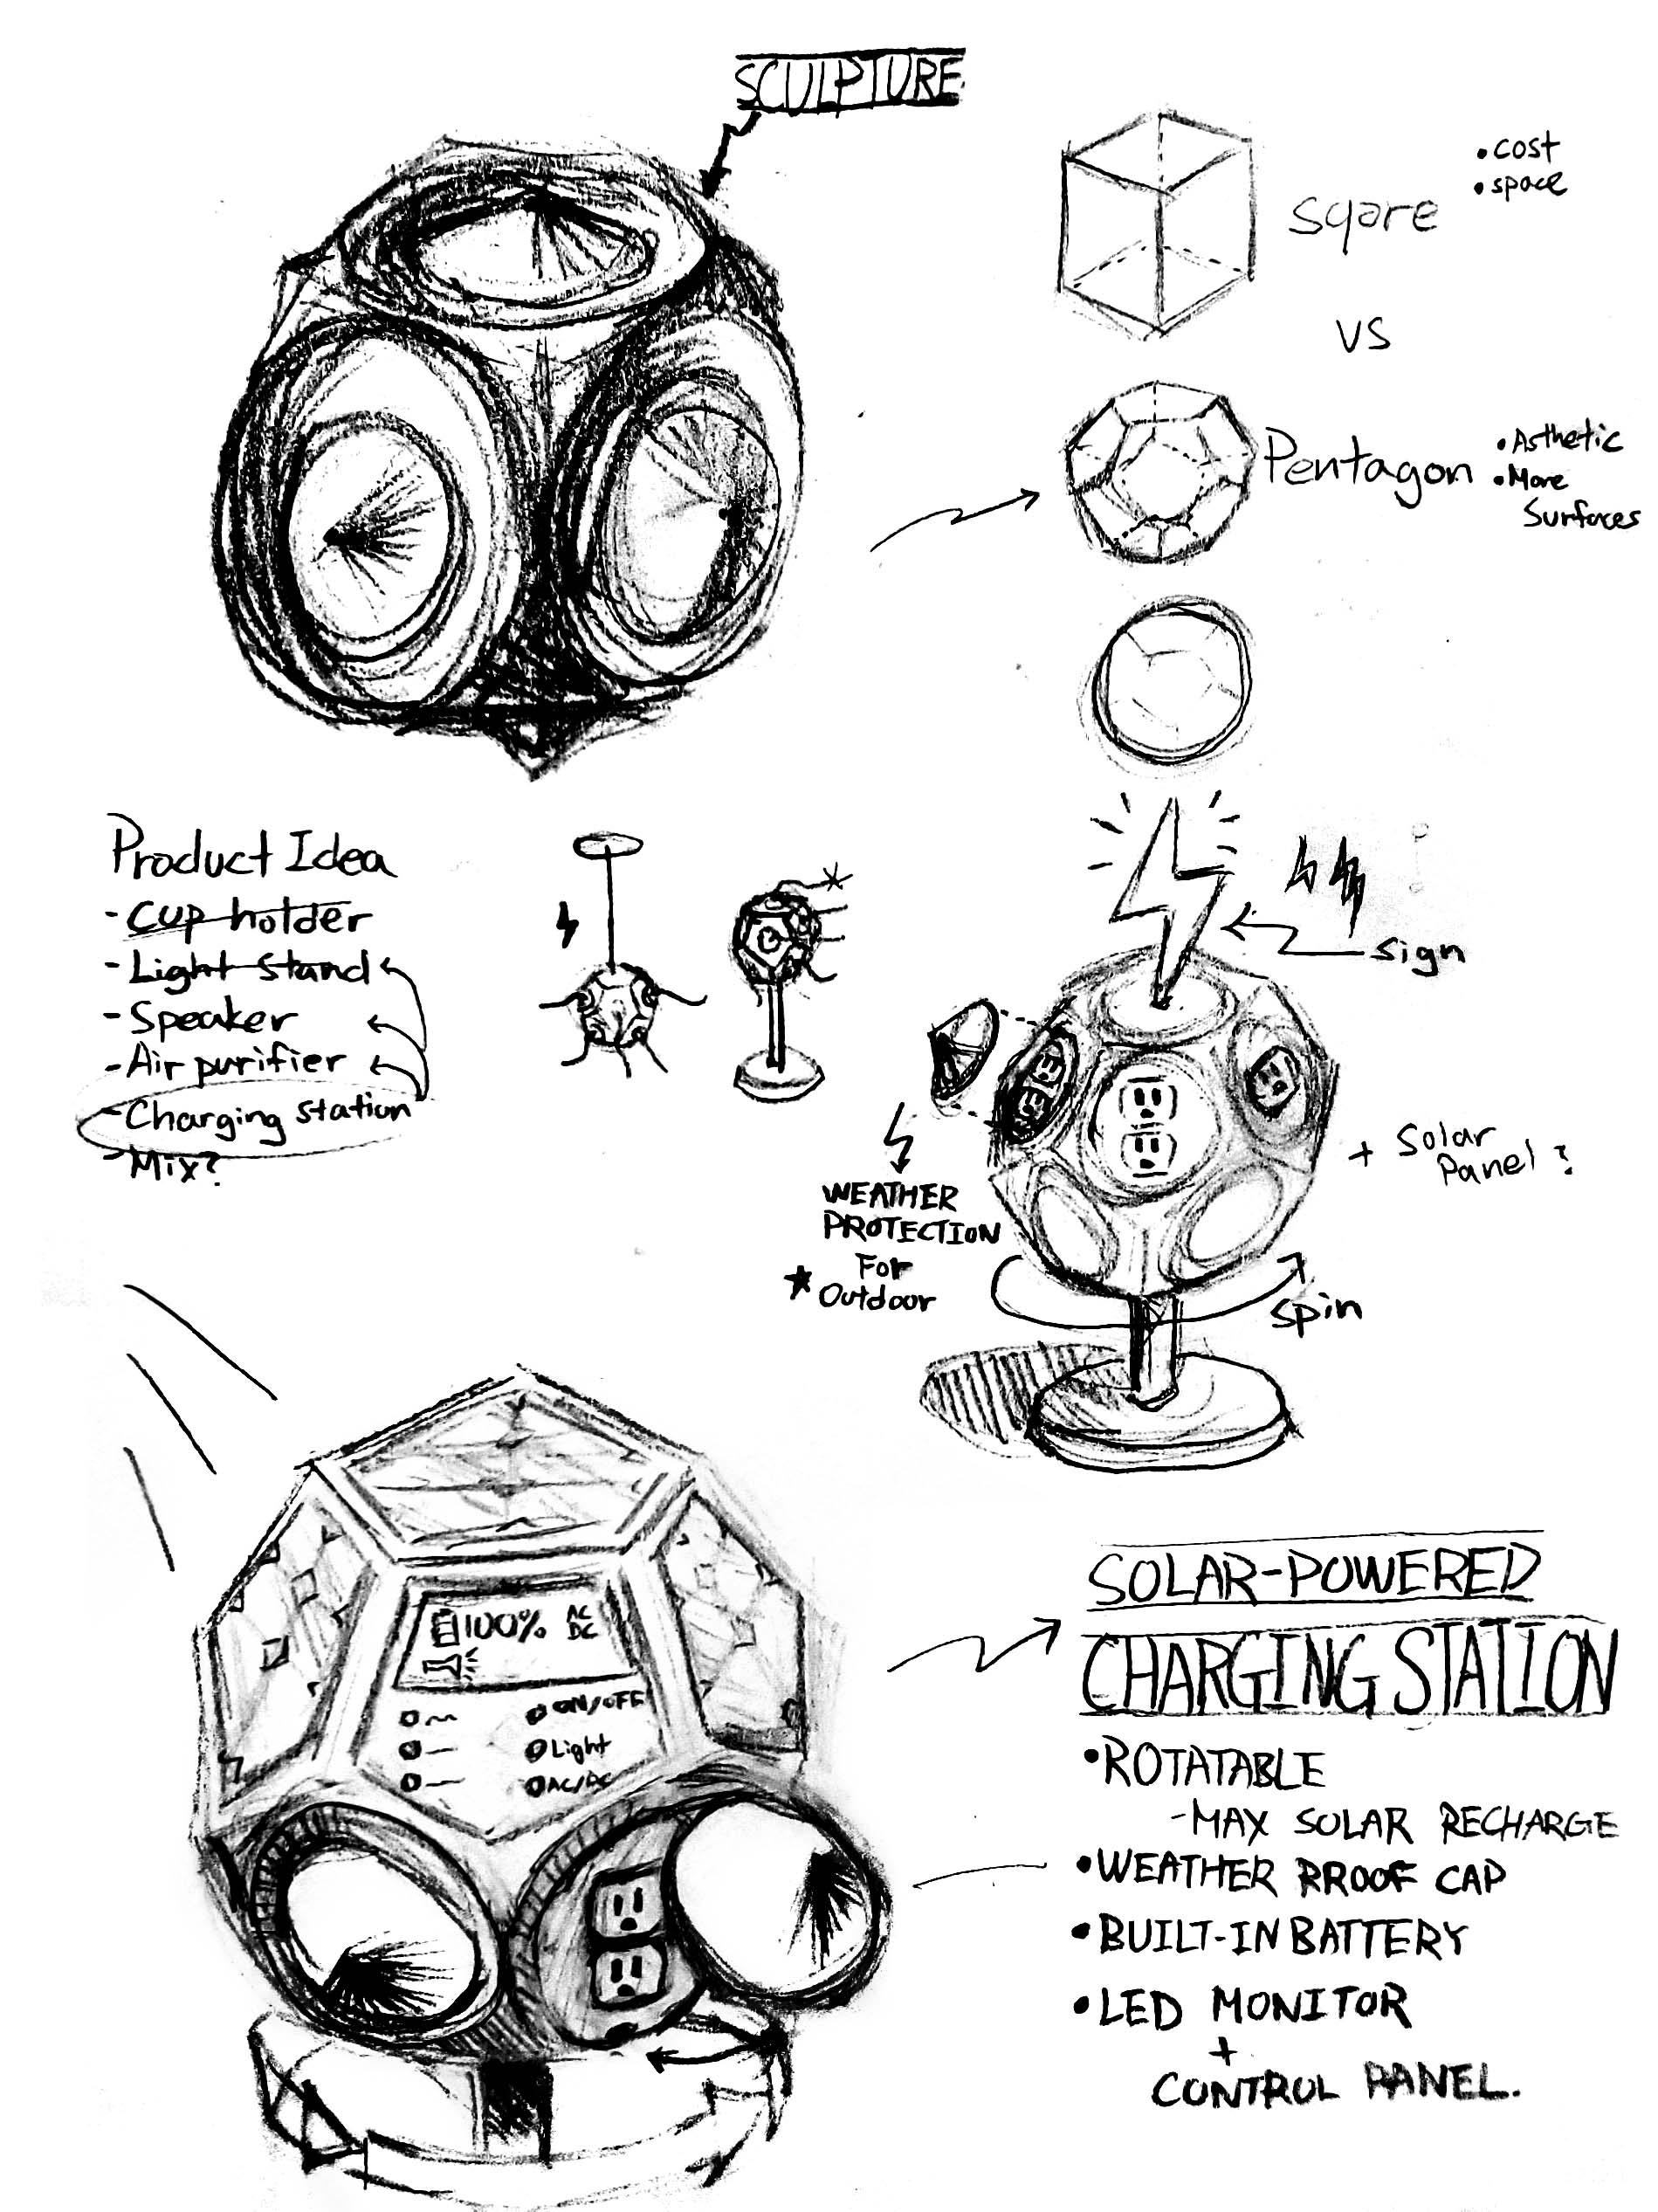 SCULPTURE
Sqare
• cost
• space
VS
Pentagon
• Asthetic
• More
Surfaces
Product Idea
- Cup holder
- Light stand
- Speaker
- Air purifier
- Charging station
- Mix?
sign
+ Solar
Panel?
WEATHER
PROTECTION
For
Outdoor
spin
100% AC
DC
ON/OFF
Light
AC/DC
SOLAR-POWERED
CHARGING STATION
• ROTATABLE
- MAX SOLAR RECHARGE
• WEATHER RROOF CAP
• BUILT-IN BATTERY
• LED MONITOR
+
CONTROL PANEL.